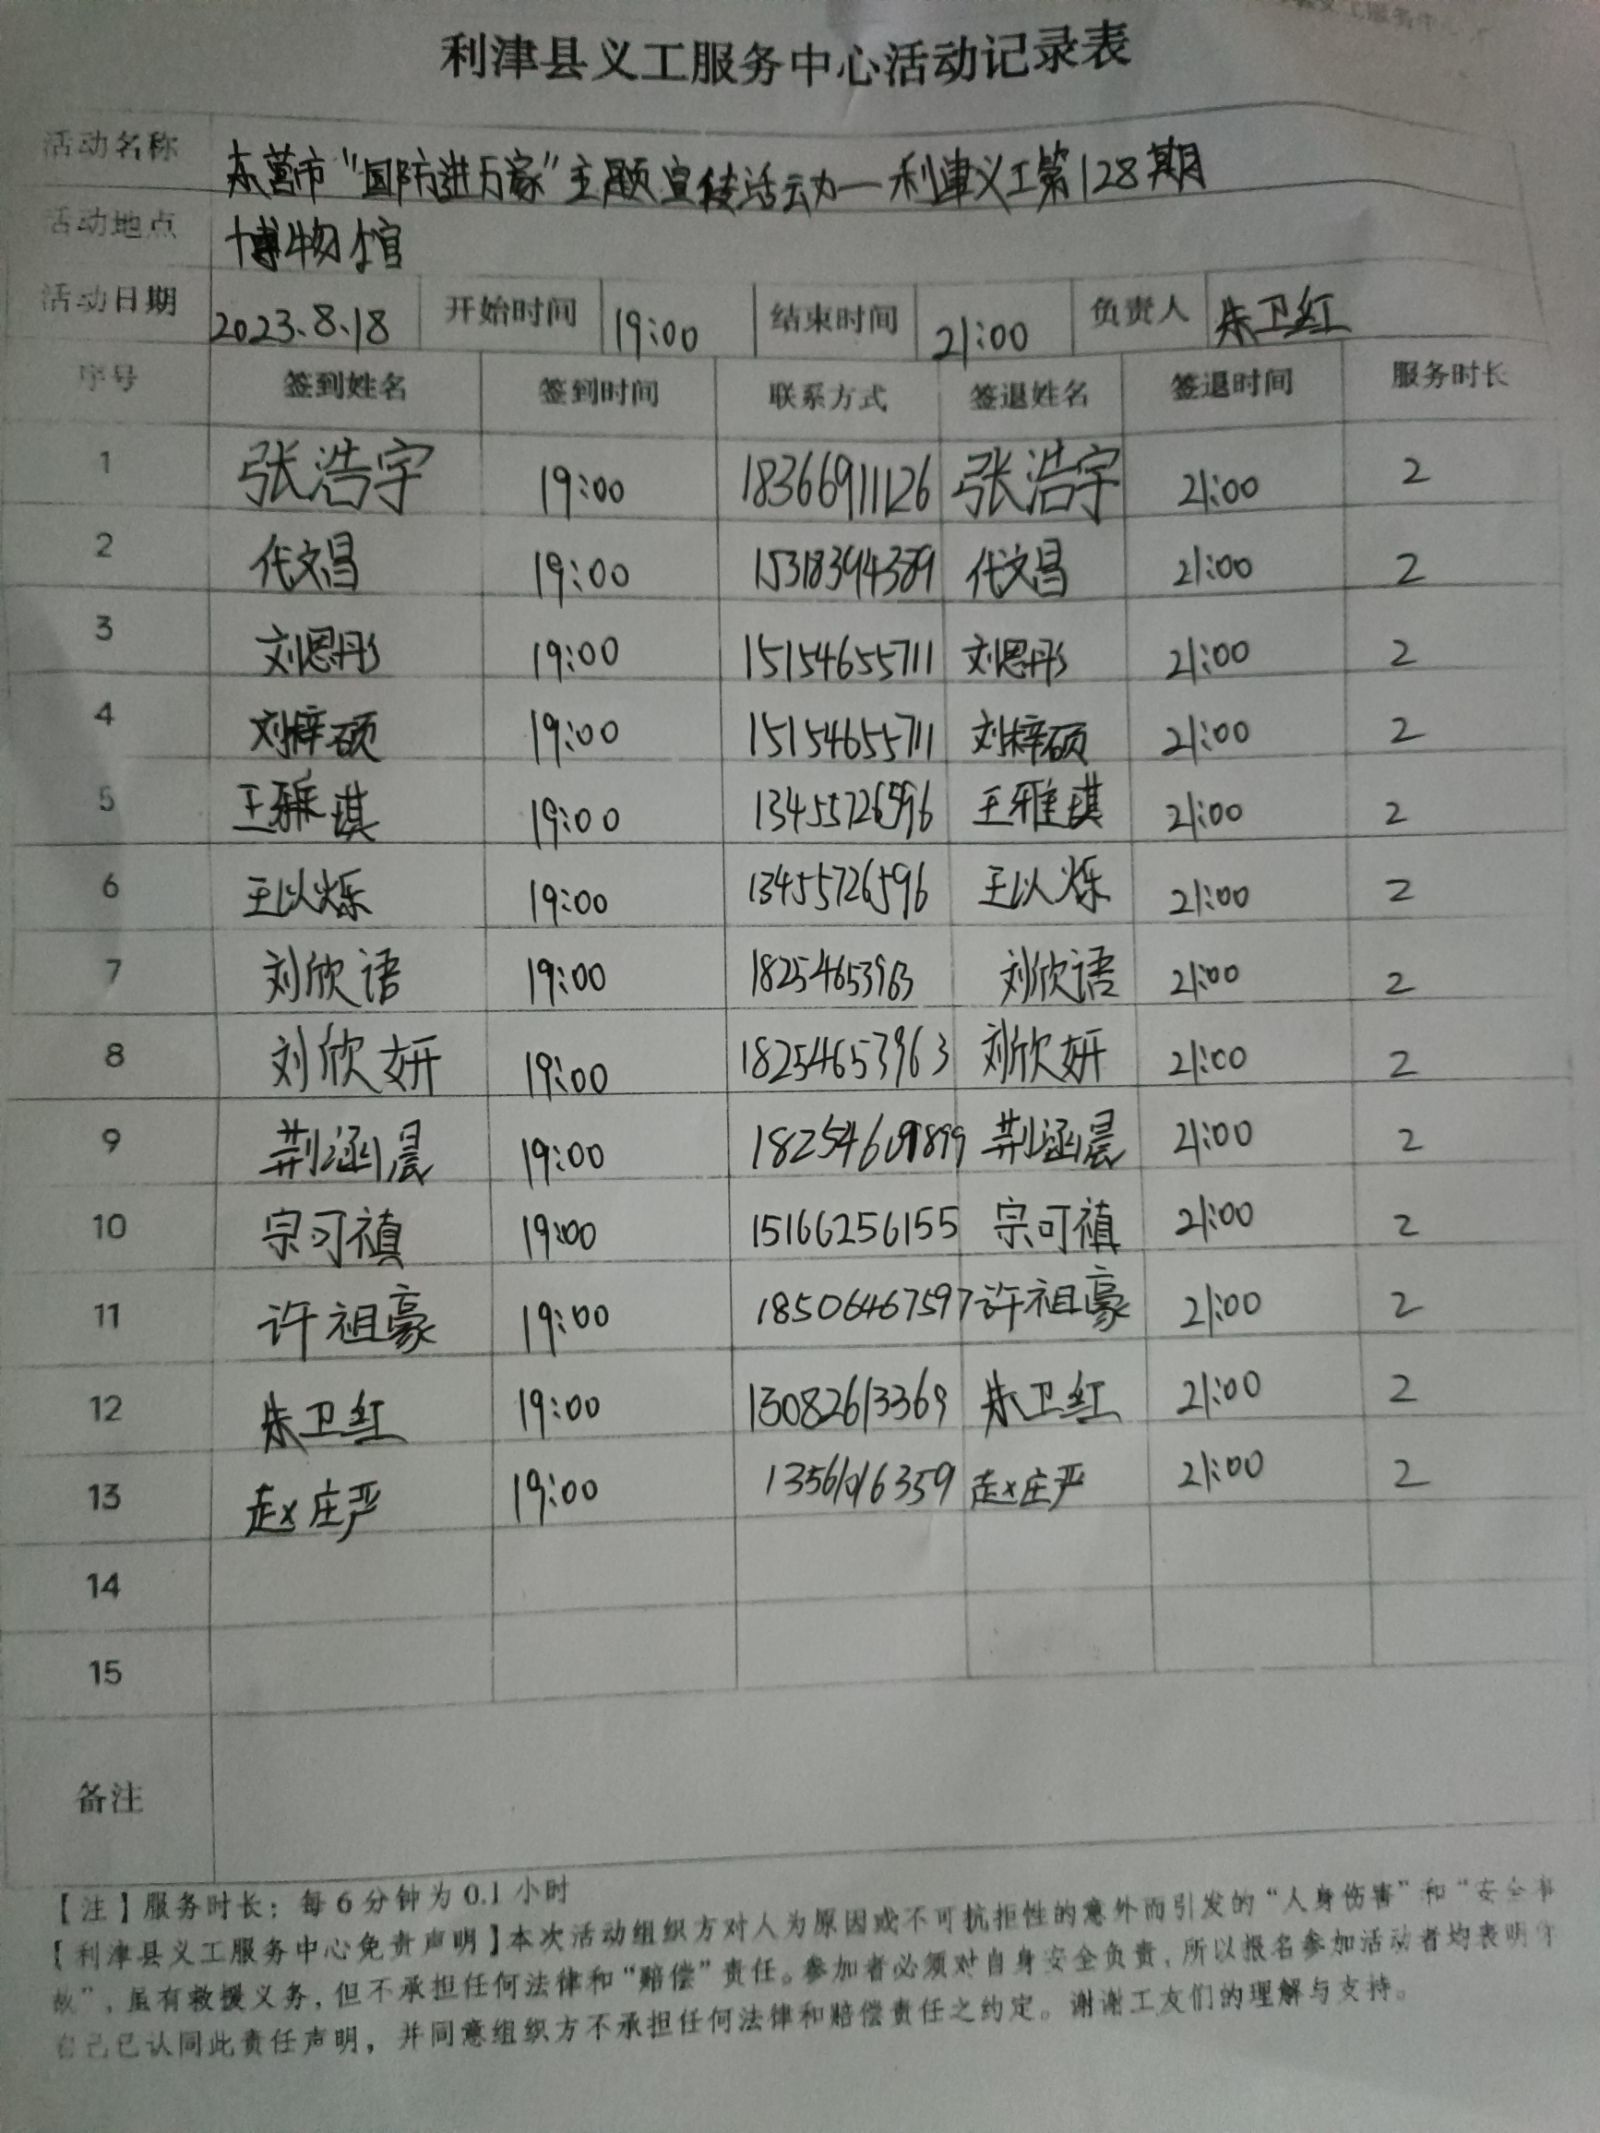 利津县义工服务中心活动记录表
活动名称 东营市“国防进万家”主题宣传活动—利津义工第128期
活动地点 博物馆
活动日期 2023.8.18 开始时间 19:00 结束时间 21:00 负责人 朱卫红
序号 签到姓名 签到时间 联系方式 签退姓名 签退时间 服务时长
1 张浩宇 19:00 18366911126 张浩宇 21:00 2
2 代文昌 19:00 15318394389 代文昌 21:00 2
3 刘恩彤 19:00 15154655711 刘恩彤 21:00 2
4 刘梓硕 19:00 15154655711 刘梓硕 21:00 2
5 王雅琪 19:00 13455726596 王雅琪 21:00 2
6 王以烁 19:00 13455726596 王以烁 21:00 2
7 刘欣语 19:00 18254653963 刘欣语 21:00 2
8 刘欣妍 19:00 18254653963 刘欣妍 21:00 2
9 荆涵晨 19:00 荆涵晨 21:00 2
10 宗可禛 19:00 15166256155 宗可禛 21:00 2
11 许祖豪 19:00 18506467597 许祖豪 21:00 2
12 朱卫红 19:00 13082613369 朱卫红 21:00 2
13 赵庄严 19:00 赵庄严 21:00 2
14
15
备注
【注】服务时长：每6分钟为0.1小时
【利津县义工服务中心免责声明】本次活动组织方对人为原因或不可抗拒性的意外而引发的“人身伤害”和“安全事
故”，虽有救援义务，但不承担任何法律和“赔偿”责任。参加者必须对自身安全负责，所以报名参加活动者均表明
自己已认同此责任声明，并同意组织方不承担任何法律和赔偿责任之约定。谢谢工友们的理解与支持。